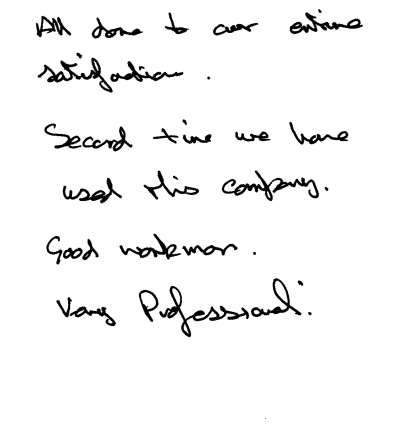 All done to our entire
satisfaction.
Second time we have
used this company.
Good workman.
Very Professional.